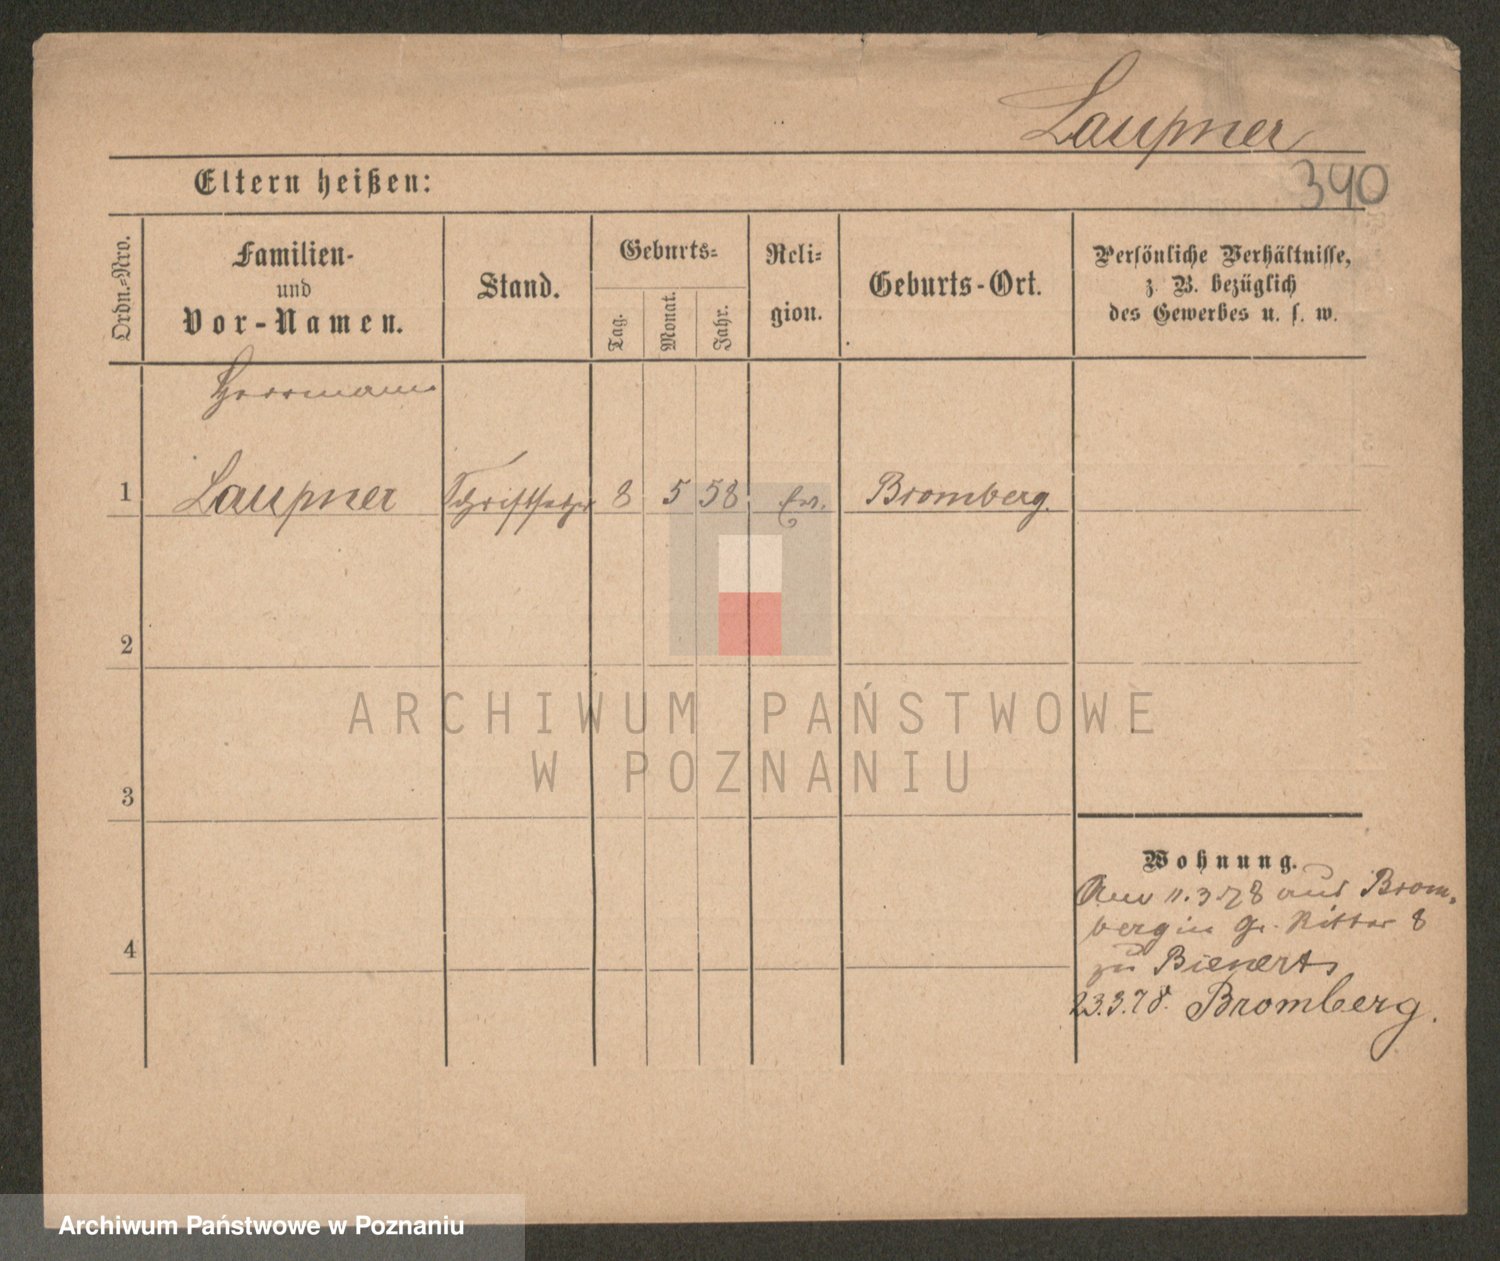 Laupner
340
Eltern heißen:
Ordn.-Nro.
Familien-
und
Vor-Namen.
Stand.
Geburts-
Tag.
Monat.
Jahr.
Reli-
gion.
Geburts-Ort.
Persönliche Verhältnisse,
z. B. bezüglich
des Gewerbes u. s. w.
Herrmann
1 Laupner Schriftsetzer 8 5 58. Ev. Bromberg.
2
3
4
ARCHIWUM PAŃSTWOWE
W POZNANIU
Wohnung.
11.3.78 aus Brom-
berg in Gr. Ritter 8
zu Bienerts
23.3.78. Bromberg.
Archiwum Państwowe w Poznaniu